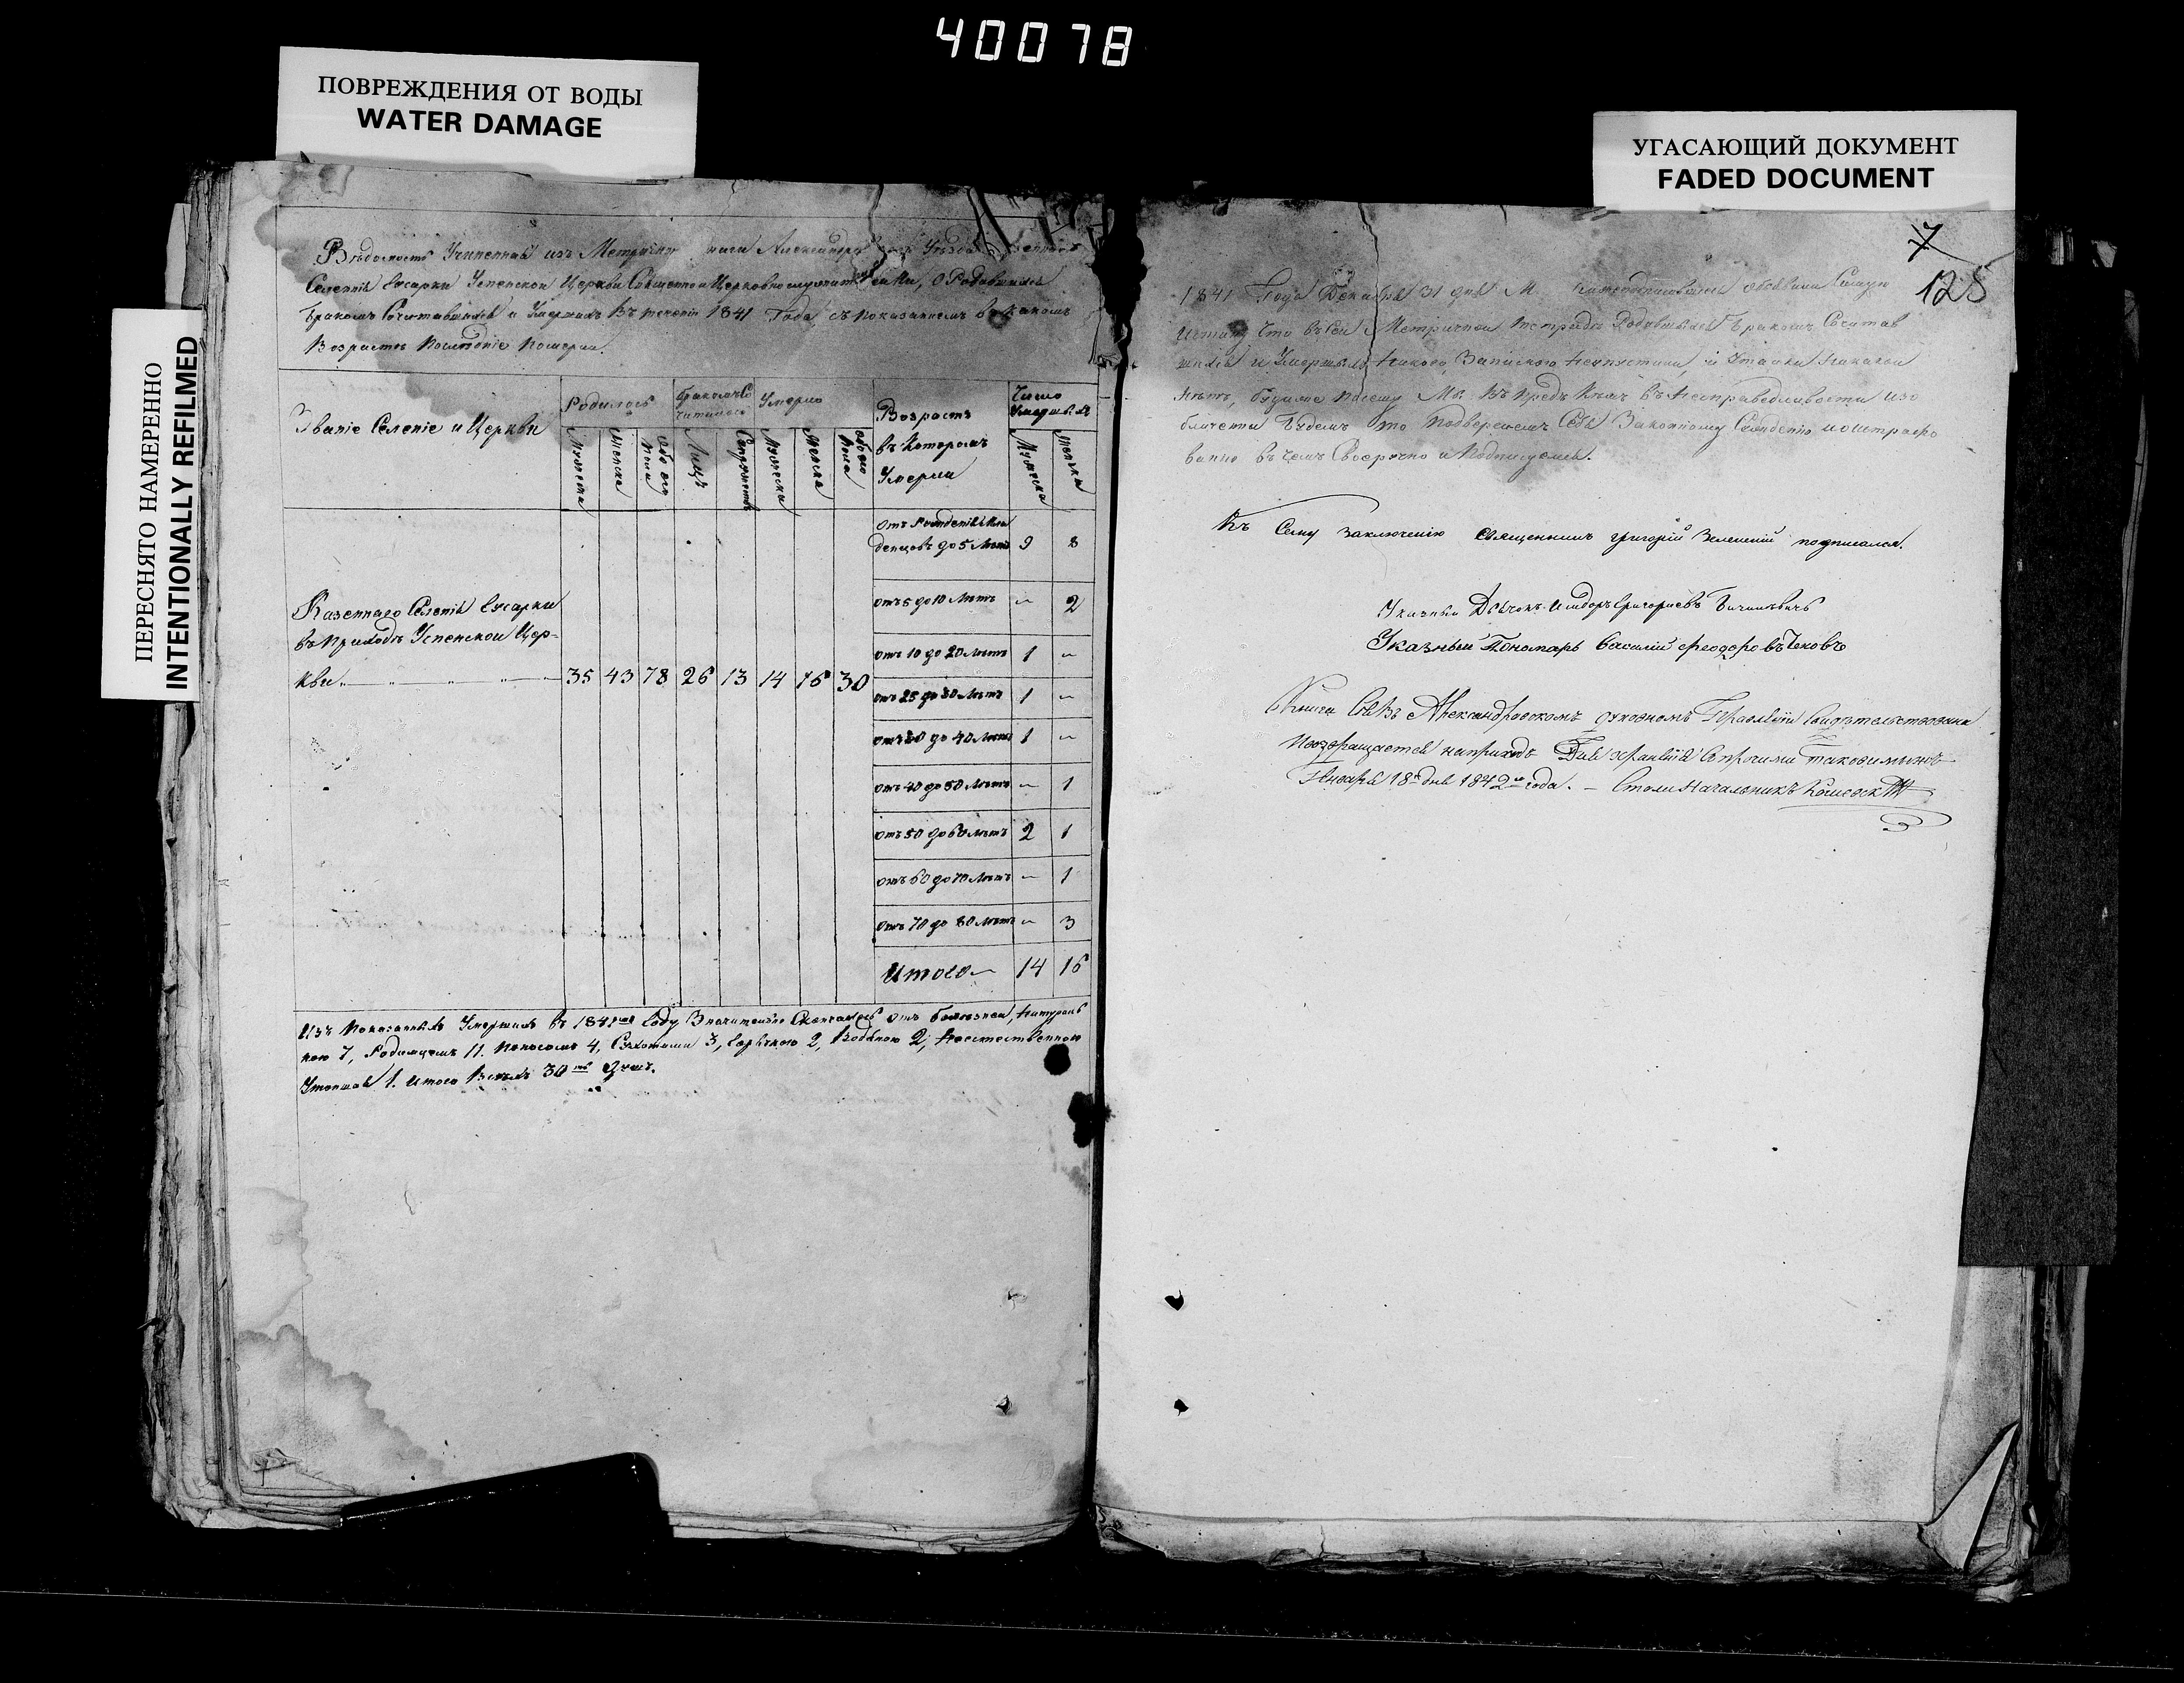 40078
ПОВРЕЖДЕНИЯ ОТ ВОДЫ
WATER DAMAGE
УГАСАЮЩИЙ ДОКУМЕНТ
FADED DOCUMENT
ПЕРЕСНЯТО НАМЕРЕННО
INTENTIONALLY REFILMED
Вѣдомость Учиненная изъ Метричной книги Уѣзда
Селенія Успенской Церкви Священно и Церковнослужителями, о Родившихся
Бракомъ Сочитавшихся и Умершихъ Въ теченіи 1841 Года, съ показаніемъ въ какомъ
Возрастѣ Послѣдніе Померли.
Званіе Селеніе и Церкви
Родилось
Бракомъ Со
читалось
Умерло
Возрастъ
въ Которомъ
Умерли
Число
Умершихъ
Мужеска
Женска
Обоего
Пола
Лицъ
Супружествъ
Мужеска
Женска
Обоего
Пола
Мужеска
Женска
Отъ Рожденія Мла
денцовъ до 5 Лѣтъ 9 8
отъ 5 до 10 Лѣтъ — 2
отъ 10 до 20 Лѣтъ 1 —
отъ 25 до 30 Лѣтъ 1 —
отъ 30 до 40 Лѣтъ 1 —
отъ 40 до 50 Лѣтъ — 1
отъ 50 до 60 Лѣтъ 2 1
отъ 60 до 70 Лѣтъ — 1
отъ 70 до 80 Лѣтъ — 3
Итого — 14 16
Казеннаго Селенія
въ Приходѣ Успенской Цер-
кви 35 43 78 26 13 14 16 30
Изъ Показанныхъ Умершихъ въ 1841мъ Году Значительно Скончалось отъ болѣзней, Натураль
ною 7, Родимцемъ 11. Поносомъ 4, Сухотами 3, Горячкою 2, Водяною 2, Неестественною
Утопшая 1. Итого Всѣхъ 30ть душъ.
7
125
1841 Года Декабря 31 дня М
что въ сей Метричной тетради Родившихся Бракомъ Сочитав
шихся и Умершихъ Никого Запискою Непустили, и Утайки Никакой
Нѣтъ, буде же Посему Мы въ Предь Кѣмъ въ Несправедливости изо
бличены Будемъ то Подвергаемъ Себя Законному Сужденію и Оштрафо
ванію въ чемъ Своеручно и Подписуемся.
Къ Сему заключенію священникъ Григорій Зеленскій подписался.
Указный Дьячокъ Исидоръ Григорьевъ
Указный Пономарь Василій Феодоровъ Чеховъ
Книга Сія Въ Александровскомъ духовномъ Правленіи Свидѣтельствована
и возвращается на приходъ Для храненія съ прочими таковымижъ
Генваря 18го дня 1842го года. — Столоначальникъ